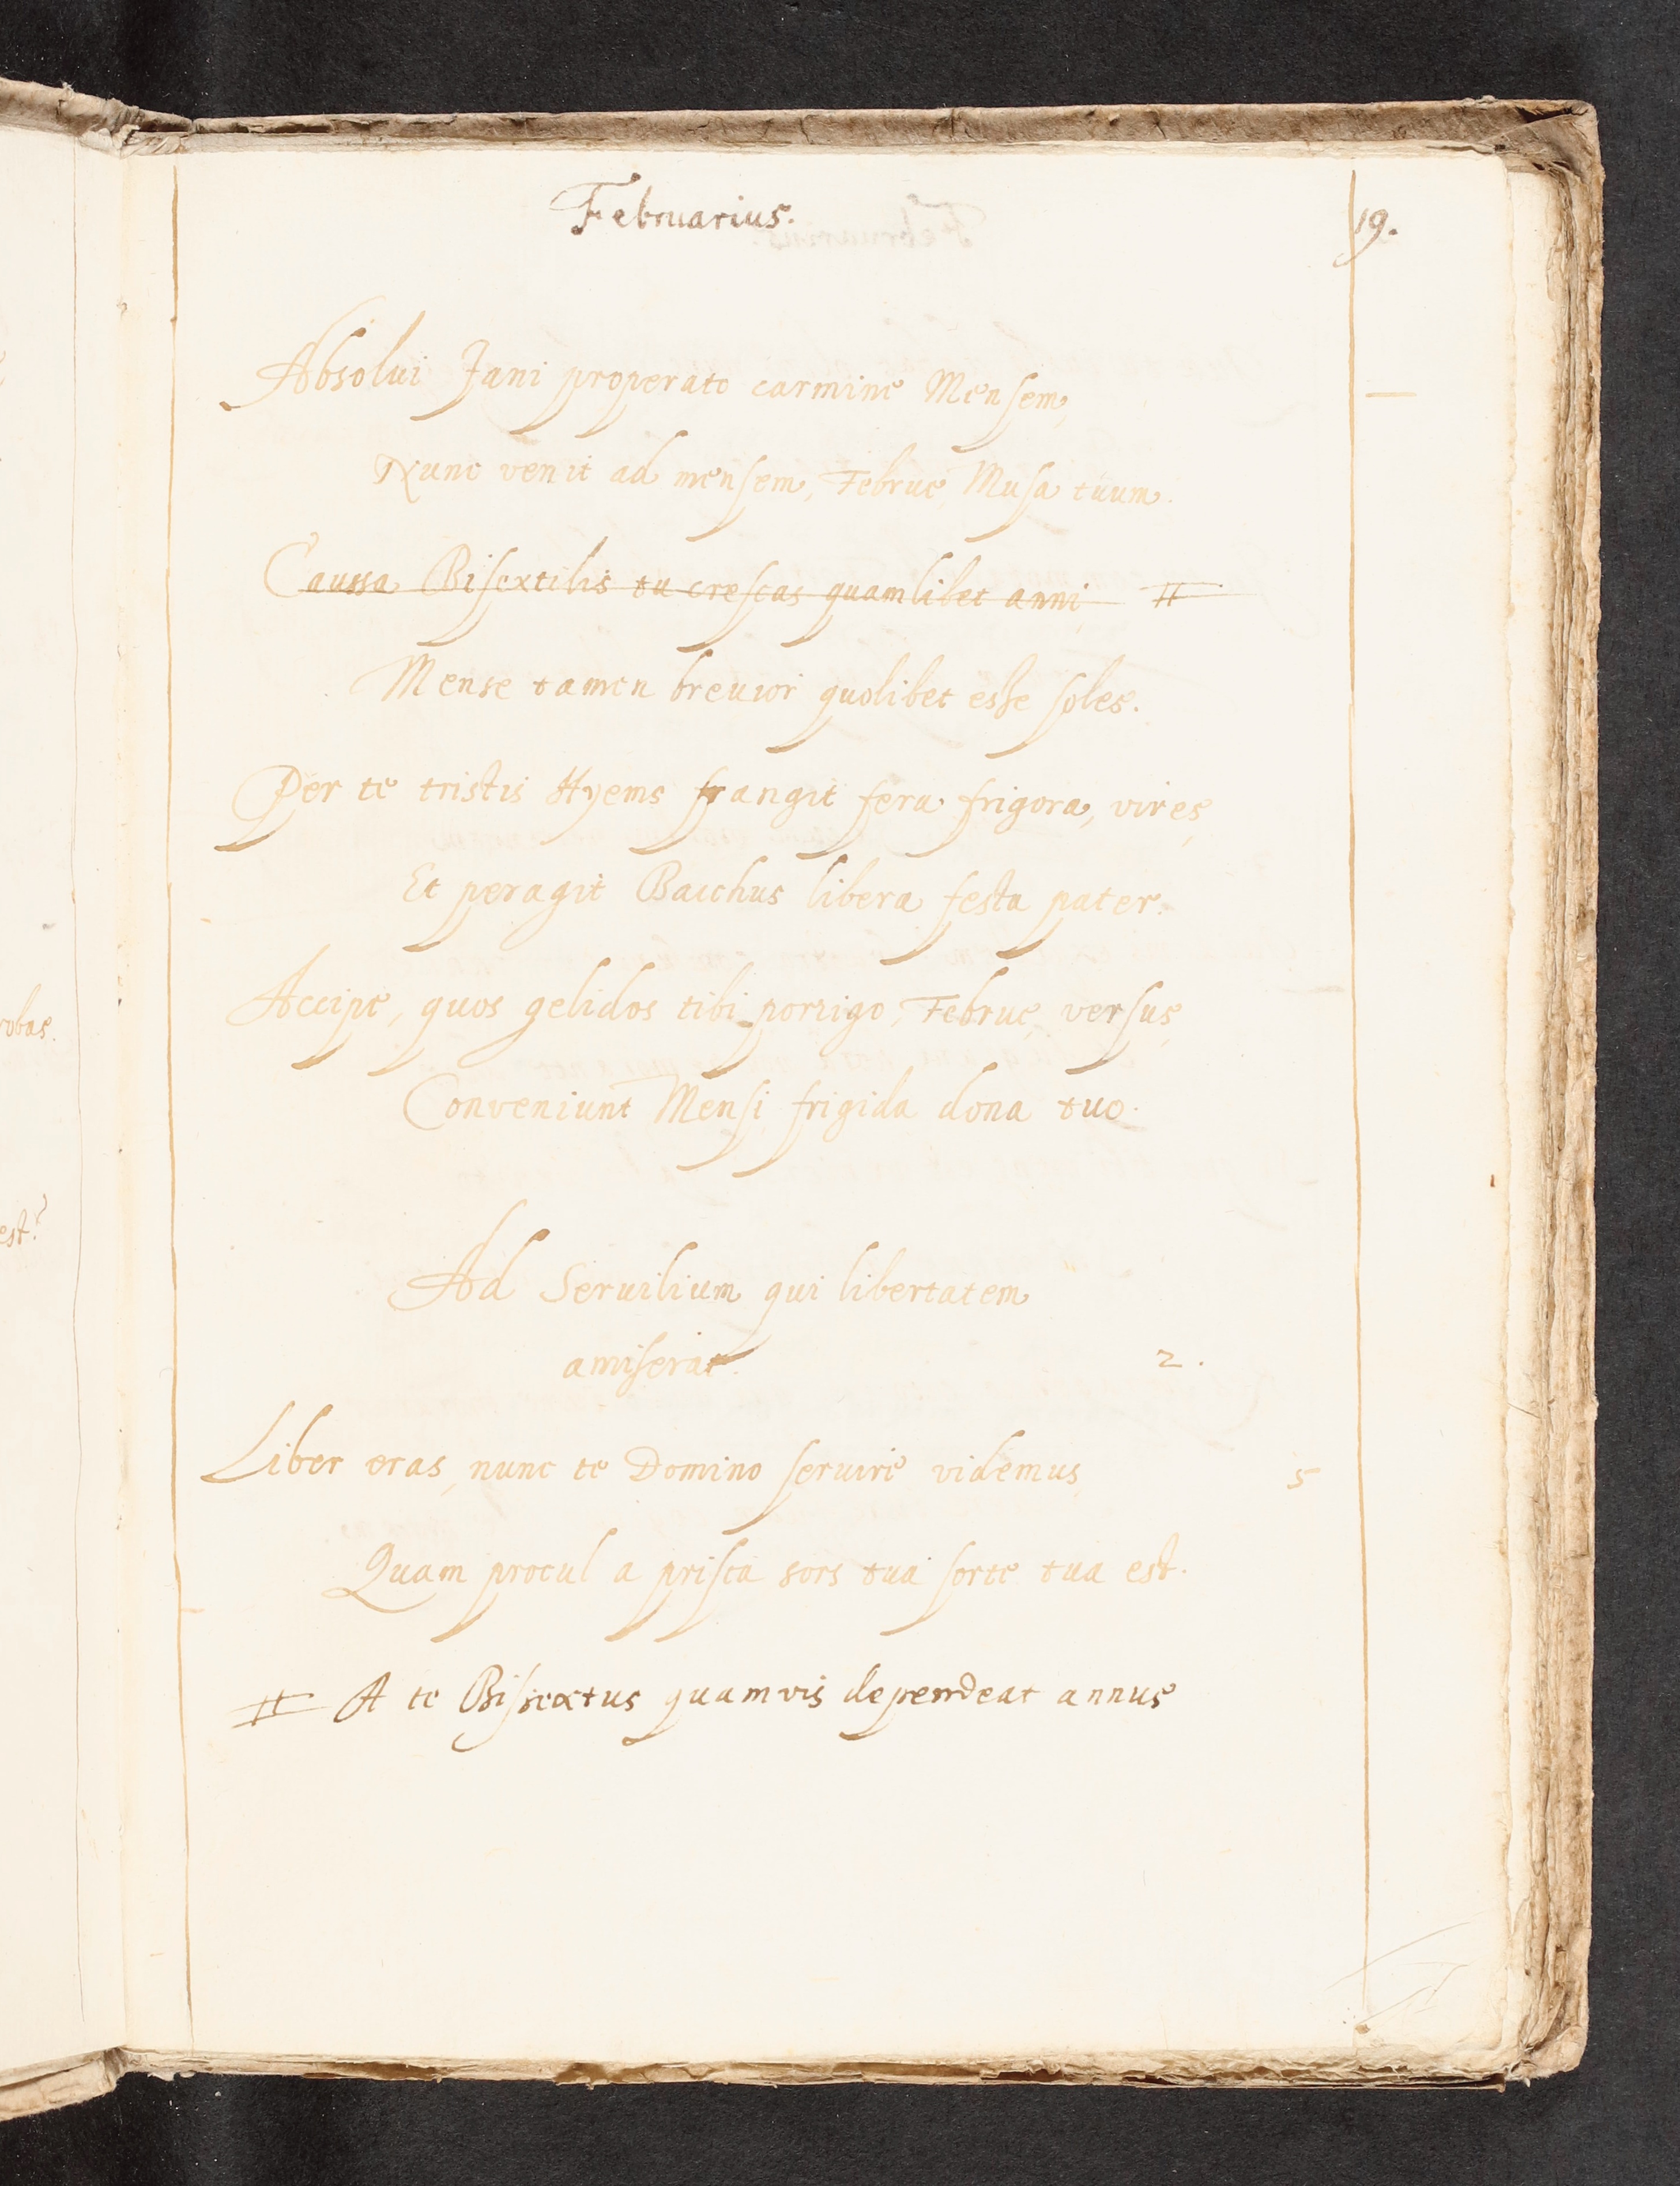 Februarius.
19.
Absolui Jani properato carmine Mensem,
Nunc venit ad mensem, Februe, Musa tuum.
Caussa Bisextilis tu crescas quamlibet anni, #
Mense tamen breuior quolibet esse soles.
Per te tristis Hyems frangit fera frigora, vires,
Et peragit Bacchus libera festa pater.
Accipe, quos gelidos tibi porrigo, Februe, versus,
Conveniunt Mensi frigida dona tuo.
Ad Seruilium qui libertatem
amiserat.
2.
Liber eras, nunc te Domino seruire videmus,
5
Quam procul a prisca sors tua sorte tua est.
# A te Bissextus quamvis dependeat annus
robas.
est?